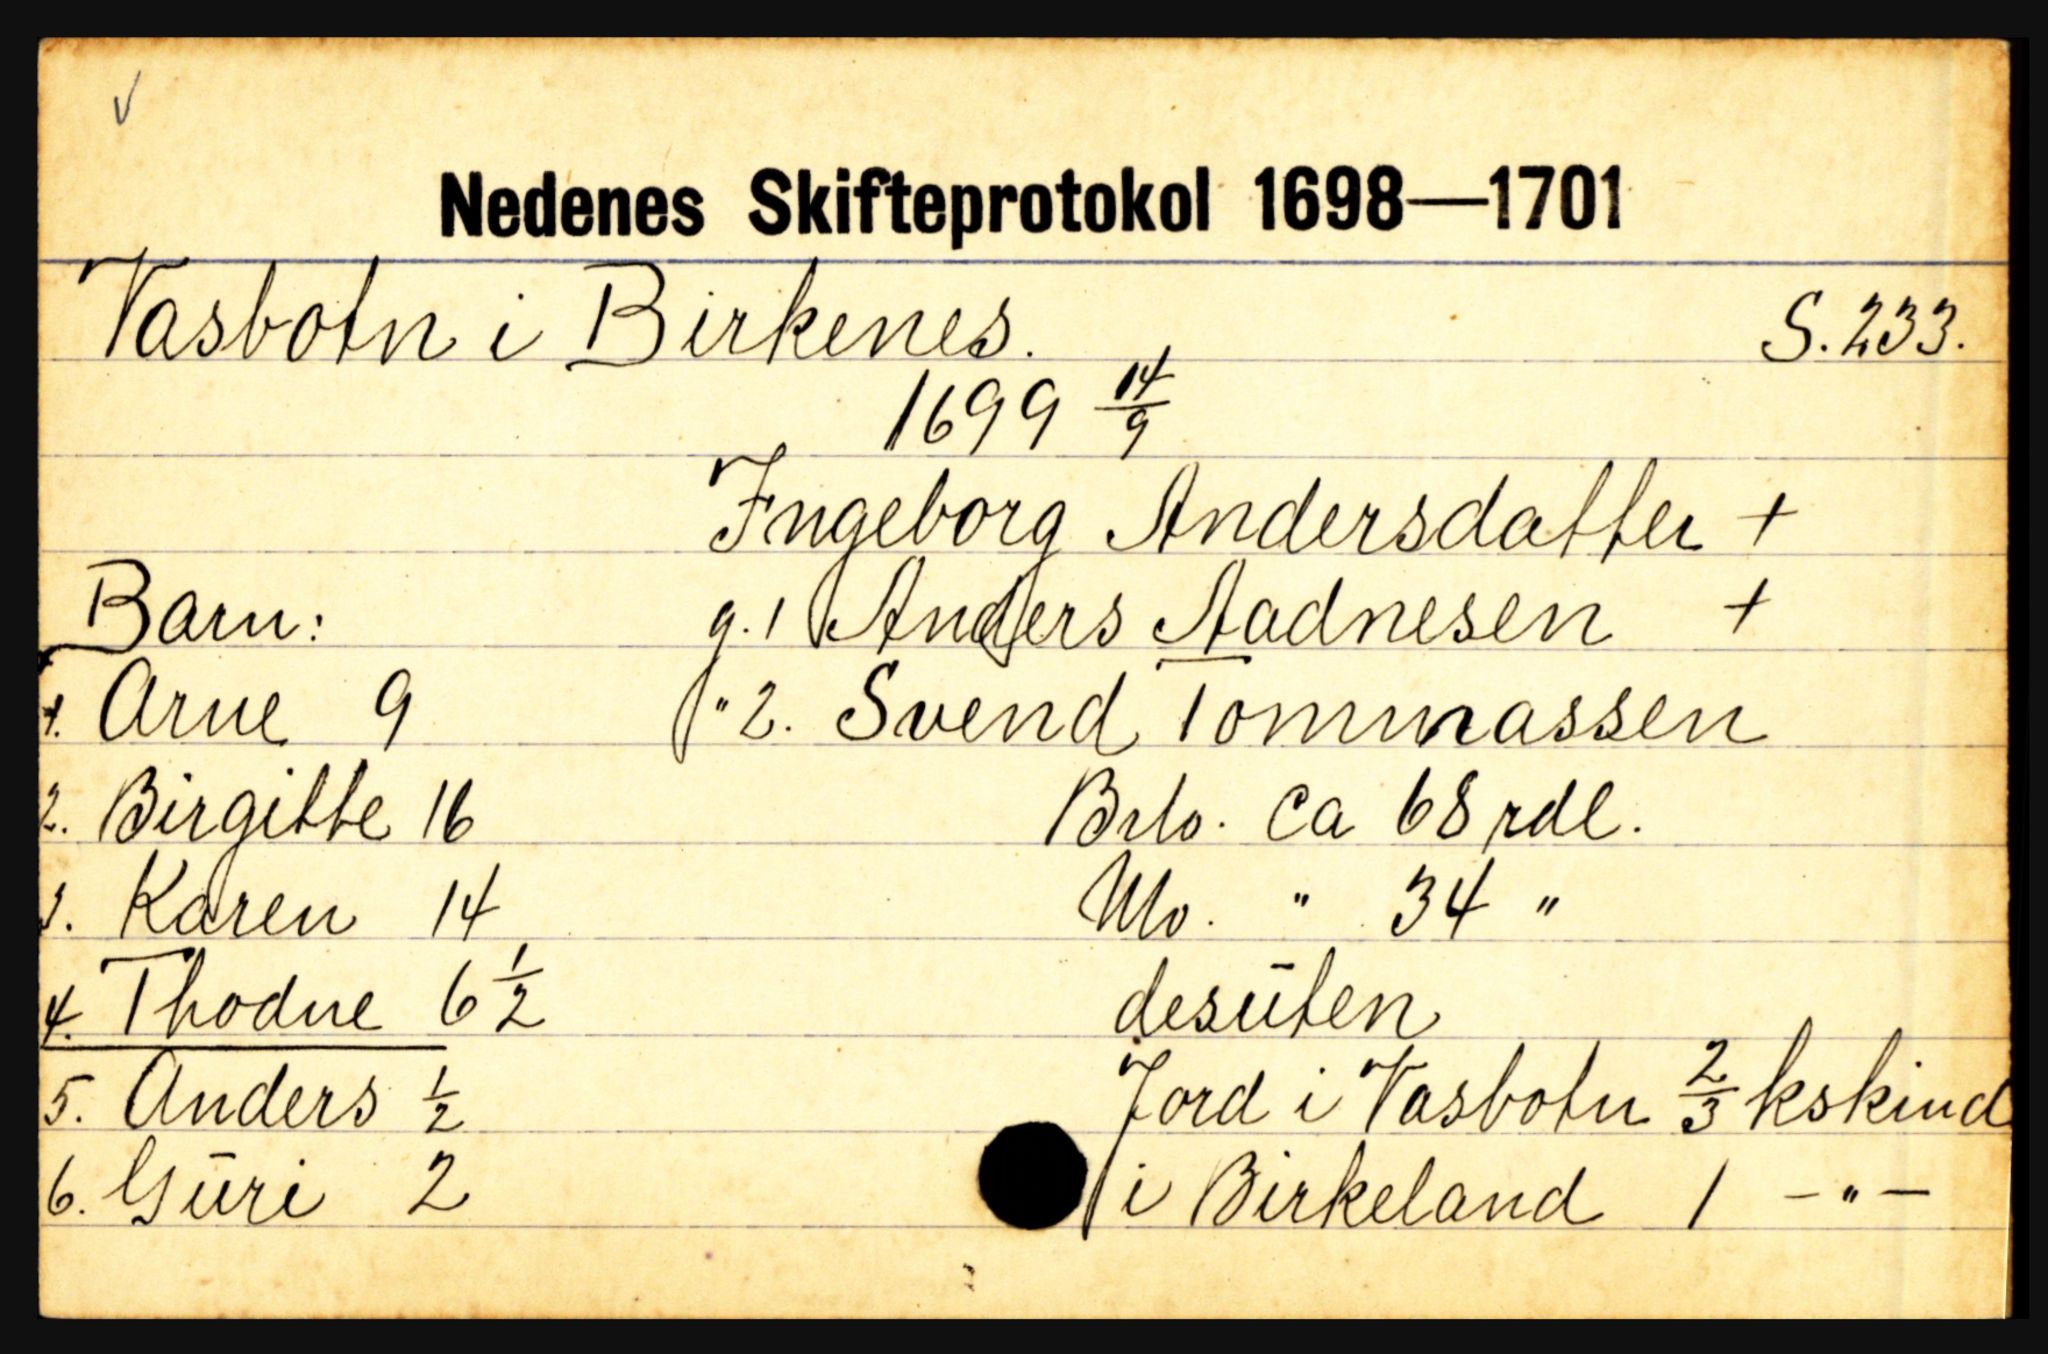 ✓
Nedenes Skifteprotokol 1698—1701
Vasbotn i Birkenes. S. 233.
1699 14/9
Ingeborg Andersdatter +
Barn: g. 1 Anders Aadnesen +
1. Arne 9 " 2. Svend Tommassen
2. Birgitte 16 Brto. ca 68 rdl.
3. Karen 14 Nto. " 34 "
4. Thodne 6 1/2 desūten
5. Anders 1/2 Jord i Vasbotn 2/3 kskind
6. Gūri 2 i Birkeland 1 — " —